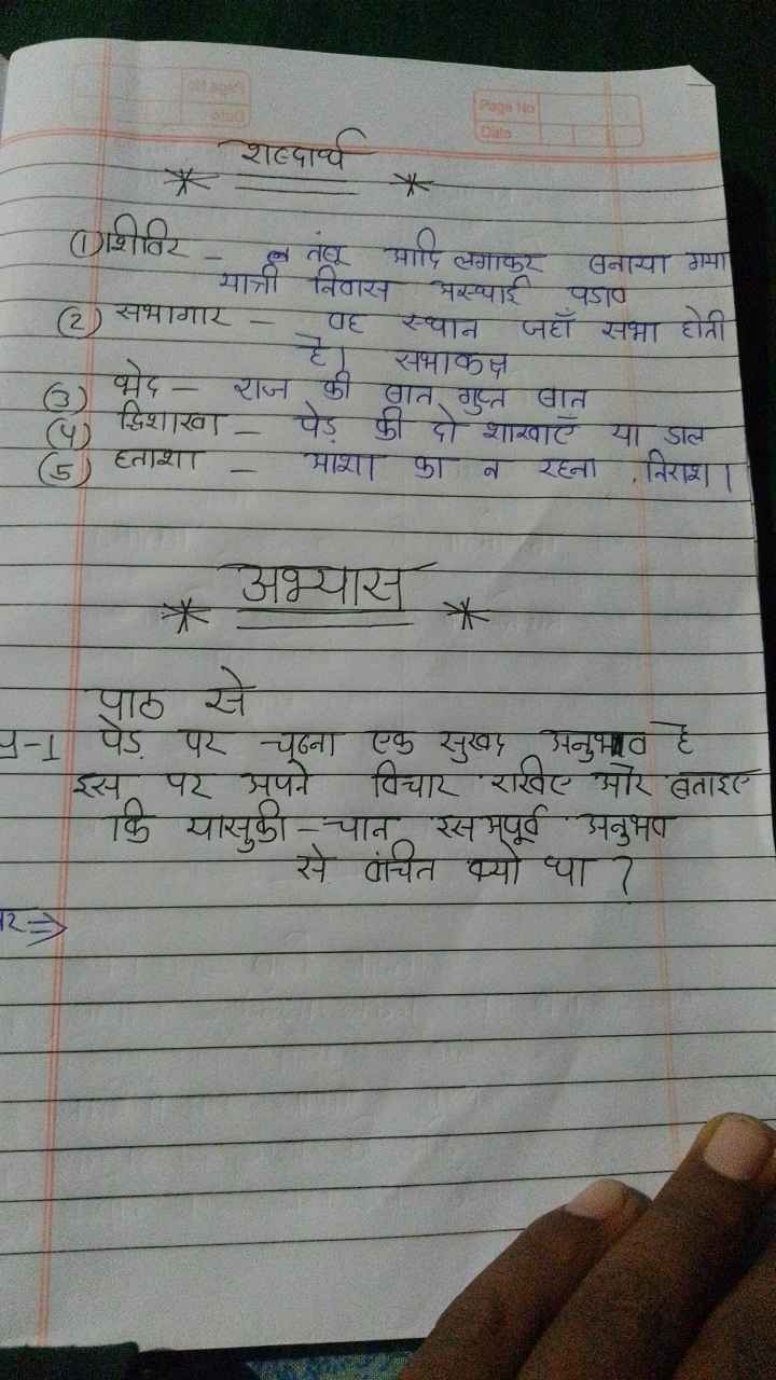 Page No
Date
शब्दार्थ
(1) शिविर - तंबू आदि लगाकर बनाया गया
यात्री निवास अस्थाई पडाव
(2) सभागार - वह स्थान जहाँ सभा होती
है। सभाकक्ष
(3) भेद - राज की बात, गुप्त बात
(4) द्विशाखा - पेड़ की दो शाखाएँ या डाल
(5) हताशा - आशा का न रहना, निराश।
अभ्यास
पाठ से
प्र-1 पेड़ पर चढना एक सुखद अनुभव है
इस पर अपने विचार रखिए और बताइए
कि यासुकी-चान इस अपूर्व अनुभव
से वंचित क्यो था ?